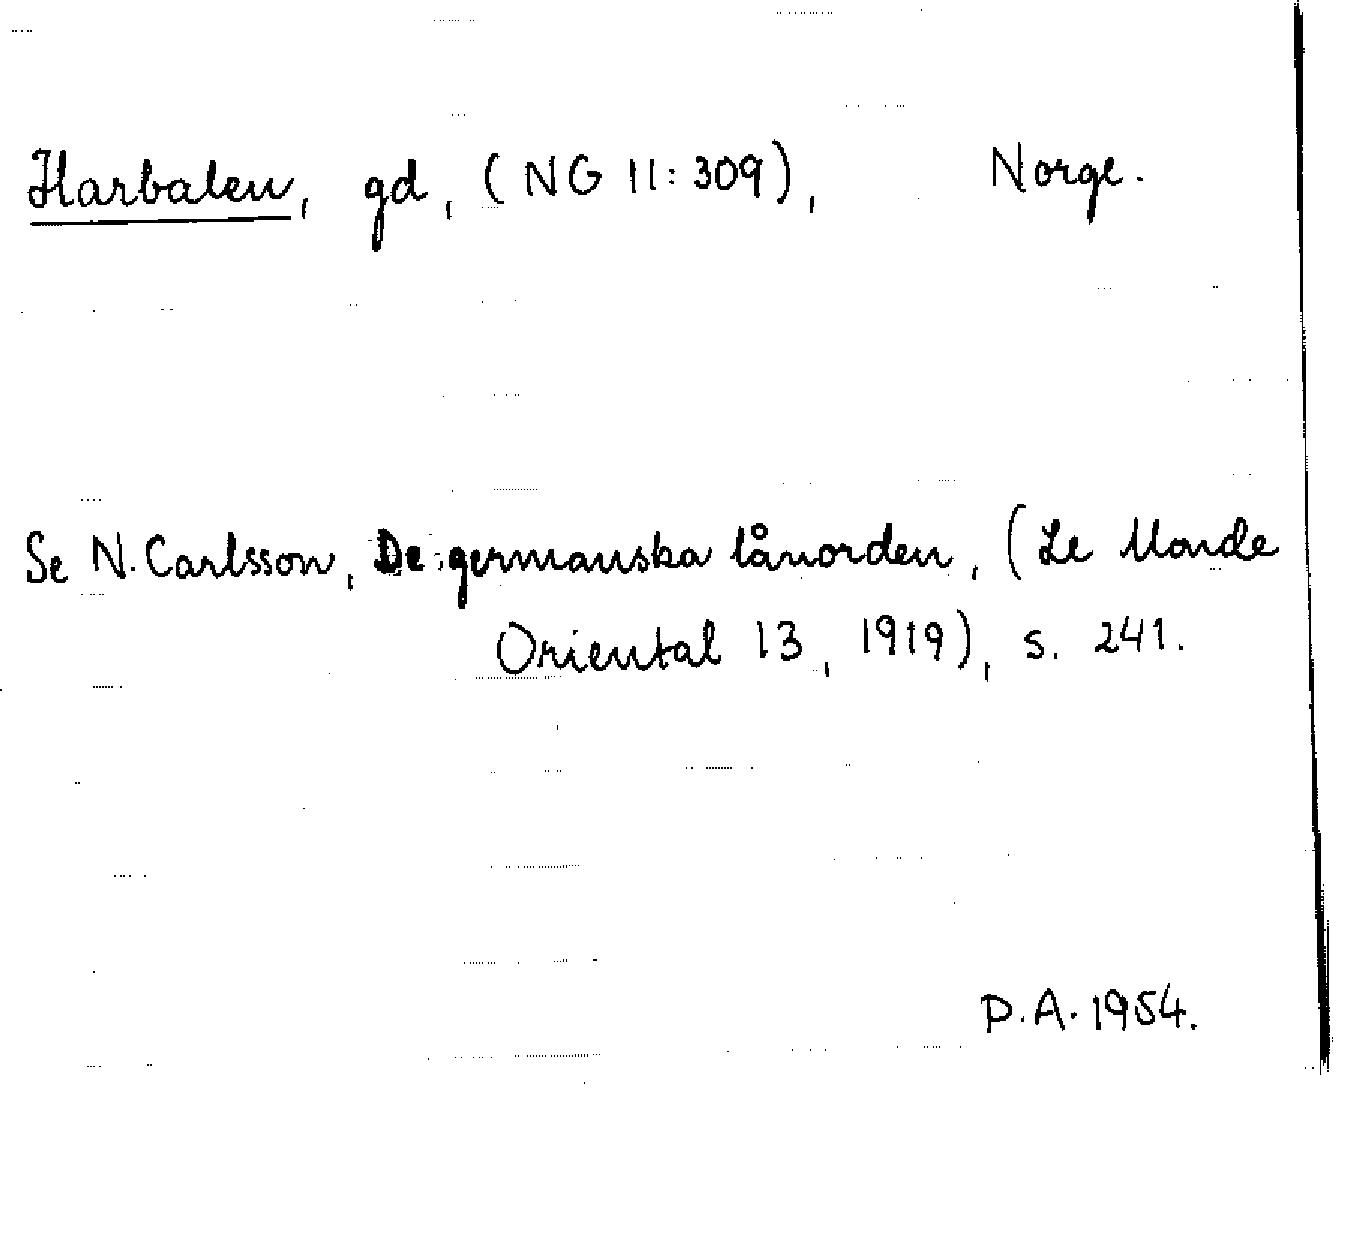 Harbalen, gd, (NG 11:309), Norge.
Se N. Carlsson, De germanska lånorden, (Le Monde
Oriental 13, 1919), s. 241.
D.A. 1954.